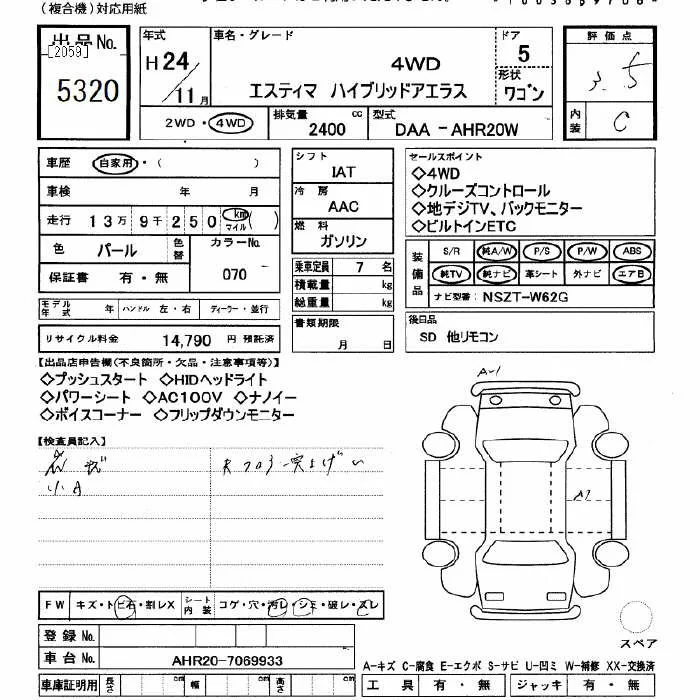 (複合機)対応用紙
出品No.
[2059]
5320
年式
H24/11月
車名・グレード
4WD
エスティマ ハイブリッドアエラス
ドア
5
形状
ワゴン
評価点
3.5
内装
C
2WD・4WD
排気量
2400 cc
型式
DAA-AHR20W
車歴 自家用・( )
車検 年 月
走行 13万9千250 km マイル ( )
色 パール 色替 カラーNo.
保証書 有・無 070
モデル年式 年 ハンドル 左・右 ディーラー・並行
リサイクル料金 14,790 円 預託済
シフト
IAT
冷房
AAC
燃料
ガソリン
乗車定員 7 名
積載量 kg
総重量 kg
書類期限
月 日
セールスポイント
◇4WD
◇クルーズコントロール
◇地デジTV、バックモニター
◇ビルトインETC
装備品
S/R 純A/W P/S P/W ABS
純TV 純ナビ 革シート 外ナビ エアB
ナビ型番: NSZT-W62G
後日品
SD 他リモコン
【出品店申告欄(不良箇所・欠品・注意事項等)】
◇プッシュスタート ◇HIDヘッドライト
◇パワーシート ◇AC100V ◇ナノイー
◇ボイスコーナー ◇フリップダウンモニター
【検査員記入】
小A
A-1
A1
FW キズ・トビ石・割レX シート内装 コゲ・穴・汚レ・シミ・破レ・スレ
登録No.
車台No. AHR20-7069933
車庫証明用 長さ cm 幅 cm 高さ cm
スペア
A-キズ C-腐食 E-エクボ S-サビ U-凹ミ W-補修 XX-交換済
工具 有・無 ジャッキ 有・無